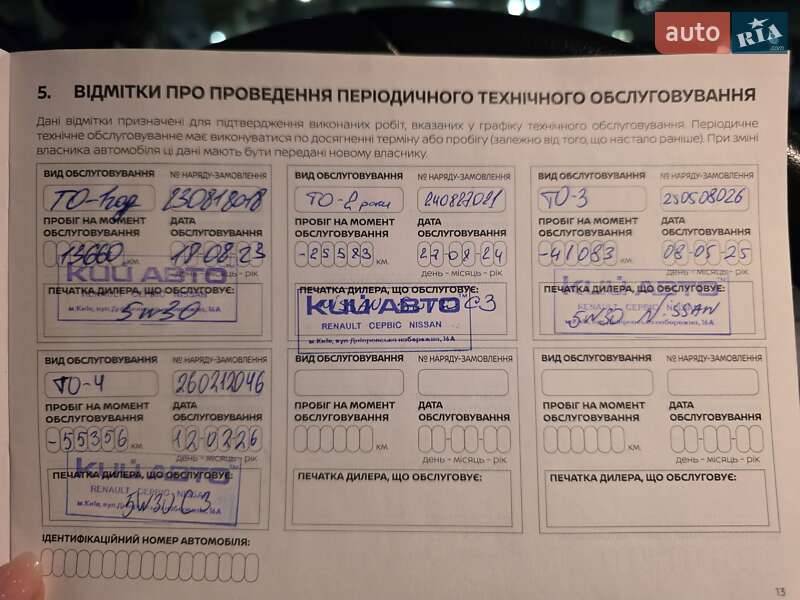 auto RIA.com
5. ВІДМІТКИ ПРО ПРОВЕДЕННЯ ПЕРІОДИЧНОГО ТЕХНІЧНОГО ОБСЛУГОВУВАННЯ
Дані відмітки призначені для підтвердження виконаних робіт, вказаних у графіку технічного обслуговування. Періодичне
технічне обслуговуванне має виконуватися по досягненні терміну або пробігу (залежно від того, що настало раніше). При зміні
власника автомобіля ці дані мають бути передані новому власнику.
ВИД ОБСЛУГОВУВАННЯ № НАРЯДУ-ЗАМОВЛЕННЯ
ТО-1год 230818018
ПРОБІГ НА МОМЕНТ ОБСЛУГОВУВАННЯ ДАТА ОБСЛУГОВУВАННЯ
13660 км. 18-08-23
день - місяць - рік
КИЙ АВТО™
ПЕЧАТКА ДИЛЕРА, ЩО ОБСЛУГОВУЄ:
RENAULT СЕРВІС NISSAN
5W30
ВИД ОБСЛУГОВУВАННЯ № НАРЯДУ-ЗАМОВЛЕННЯ
ТО-2 роки 240827021
ПРОБІГ НА МОМЕНТ ОБСЛУГОВУВАННЯ ДАТА ОБСЛУГОВУВАННЯ
-25583 км. 27-08-24
день - місяць - рік
ПЕЧАТКА ДИЛЕРА, ЩО ОБСЛУГОВУЄ:
КИЙ АВТО™ C3
RENAULT СЕРВІС NISSAN
м.Київ, вул.Дніпровська набережна, 16А
ВИД ОБСЛУГОВУВАННЯ № НАРЯДУ-ЗАМОВЛЕННЯ
ТО-3 250508026
ПРОБІГ НА МОМЕНТ ОБСЛУГОВУВАННЯ ДАТА ОБСЛУГОВУВАННЯ
-41083 км. 08-05-25
день - місяць - рік
КИЙ АВТО™
ПЕЧАТКА ДИЛЕРА, ЩО ОБСЛУГОВУЄ:
RENAULT СЕРВІС NISSAN
5W30 NISSAN
ВИД ОБСЛУГОВУВАННЯ № НАРЯДУ-ЗАМОВЛЕННЯ
ТО-4 260212046
ПРОБІГ НА МОМЕНТ ОБСЛУГОВУВАННЯ ДАТА ОБСЛУГОВУВАННЯ
-55356 км. 12-02-26
день - місяць - рік
КИЙ АВТО™
ПЕЧАТКА ДИЛЕРА, ЩО ОБСЛУГОВУЄ:
RENAULT СЕРВІС NISSAN
5W30 C3
ВИД ОБСЛУГОВУВАННЯ № НАРЯДУ-ЗАМОВЛЕННЯ
ПРОБІГ НА МОМЕНТ ОБСЛУГОВУВАННЯ ДАТА ОБСЛУГОВУВАННЯ
км. день - місяць - рік
ПЕЧАТКА ДИЛЕРА, ЩО ОБСЛУГОВУЄ:
ВИД ОБСЛУГОВУВАННЯ № НАРЯДУ-ЗАМОВЛЕННЯ
ПРОБІГ НА МОМЕНТ ОБСЛУГОВУВАННЯ ДАТА ОБСЛУГОВУВАННЯ
км. день - місяць - рік
ПЕЧАТКА ДИЛЕРА, ЩО ОБСЛУГОВУЄ:
ІДЕНТИФІКАЦІЙНИЙ НОМЕР АВТОМОБІЛЯ:
13